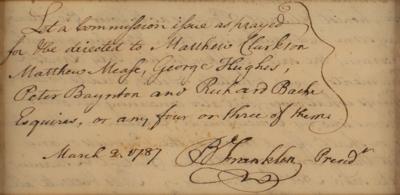 Let a Commission issue as prayed
for & be directed to Matthew Clarkson
Matthew Mease, George Hughes,
Peter Baynton and Richard Bache
Esquires, or any four or three of them
March 2. 1787 B Franklin Presidt